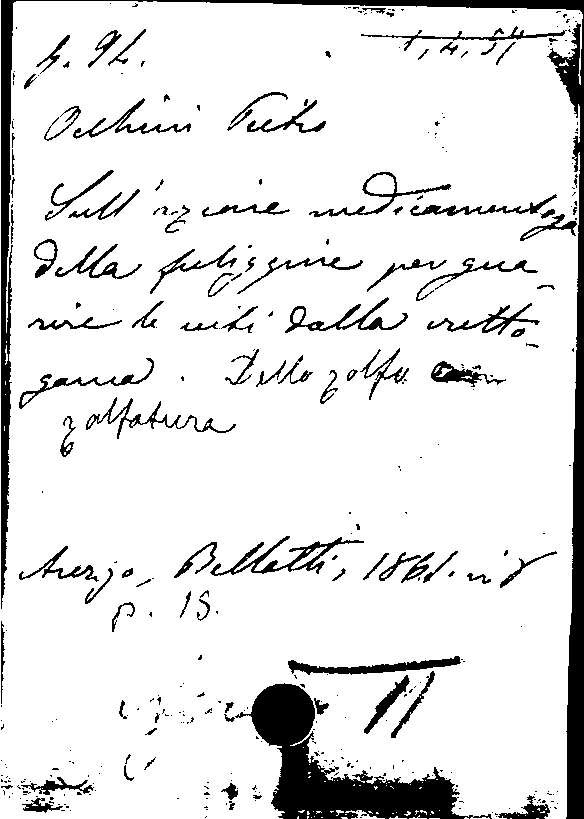 1, 4, 54
Occhini Pietro
Sull'azione medicamentosa
della fuliggine per gua-
rire le viti dalla critto-
gama. Dello zolfo
zolfatura
Arezzo, Bellotti, 1861. in 8
p. 15.
11